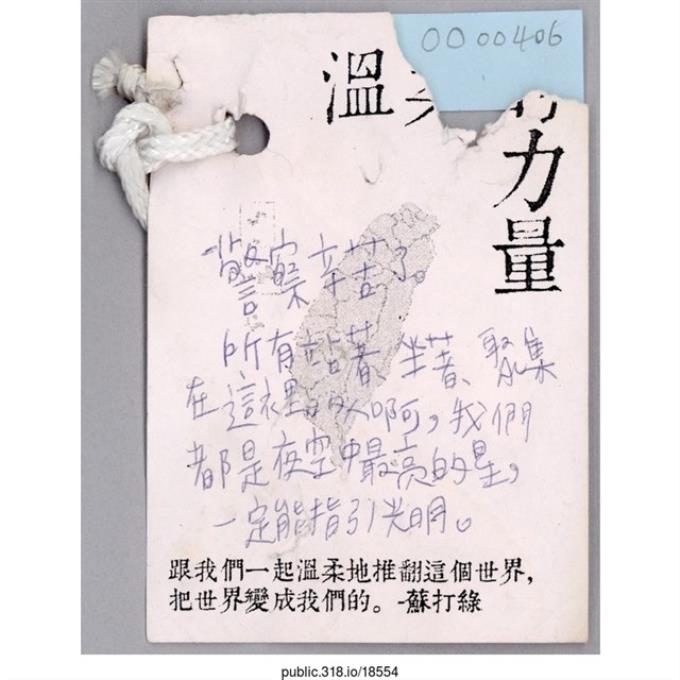 0000406
溫柔的
力量
警察辛苦了。
所有站著、坐著、聚集
在這裡的人啊，我們
都是夜空中最亮的星，
一定能指引光明。
跟我們一起溫柔地推翻這個世界，
把世界變成我們的。-蘇打綠
public.318.io/18554